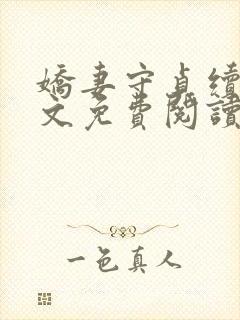 嬌妻守貞續
文免費閱讀
一色真人